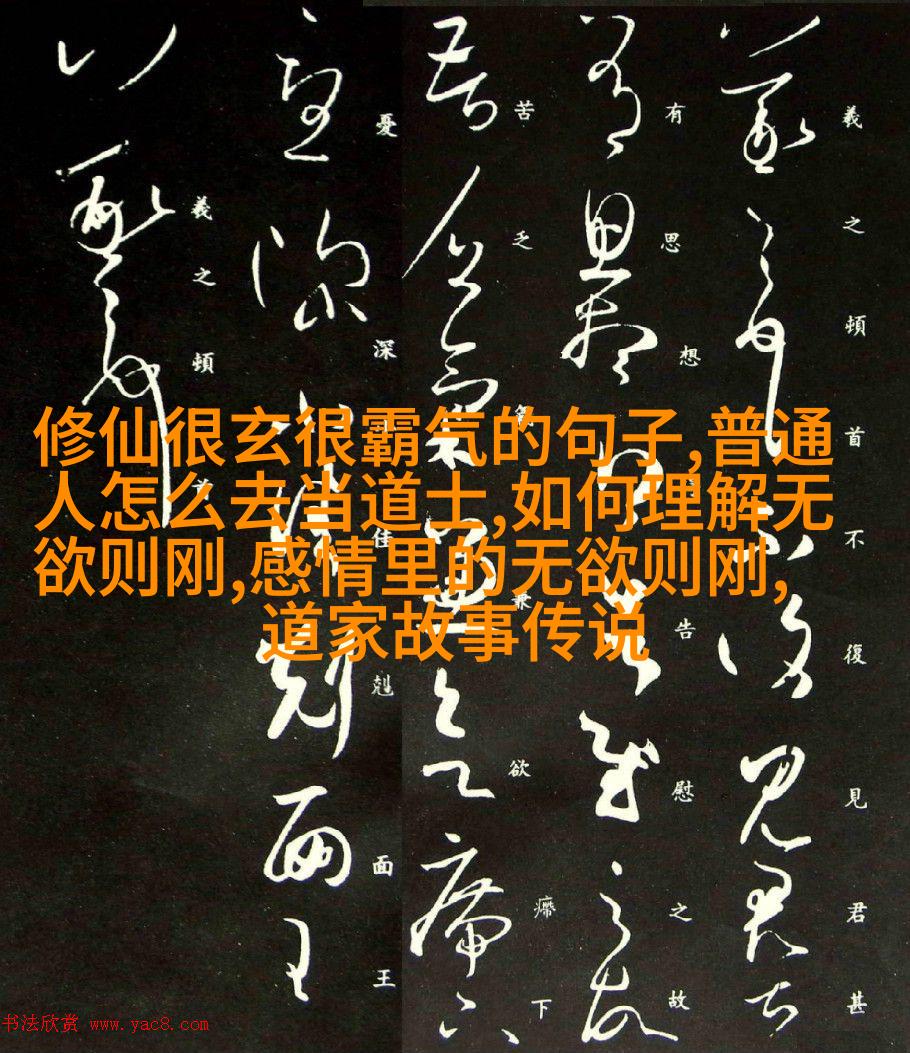 修仙很玄很霸气的句子,普通
人怎么去当道士,如何理解无
欲则刚,感情里的无欲则刚,
道家故事传说
羲之頓首不復見君甚
有思想告慰之故
苦乏兼欲下
憂深佳剋面王
羲之頓
书法欣赏 www.yac8.com